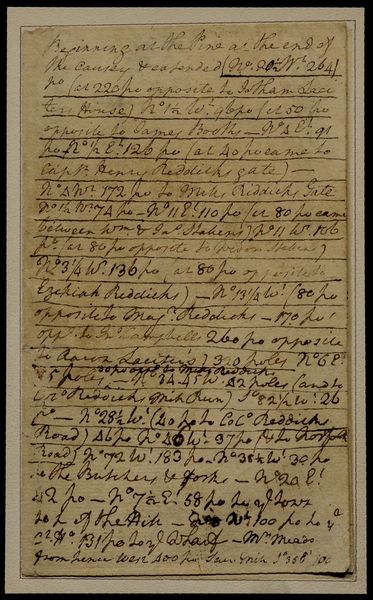 Beginning at the Pine at the end of
the Causey & extended (No. 20½ Wt. 264
po (at 220 po opposite to Jotham Lasi
ters House) No 1½ W. 96 po (at 50 po
opposite to James Booths — No 4 Et. 91
po No ½ Et. 126 po (at 40 po came to
Capt. Henry Reddicks gate) —
No 4 Wt. 172 po to Reddicks Gate
No 1½ Wt. 74 po — No 11 Et. 110 po (at 80 po came
between Wm & Stallens) No 11 Wt. 106
po (at 80 po opposite to
No 3¼ W. 136 po (at 80 po opposite to
Ezekiah Reddicks) — No 13¼ W. (80 po
opposite to Majr. Reddicks — 170 po
opp. to Campbells 260 po opposite
to Aaron Lasiters) 320 poles No 6 E
poles — No 34.45 W. 42 poles (and to
Reddicks Mill Run) So 82½ Wt. 26
po — No 28½ W. (40 po to Colo. Reddicks
Road) 46 po No 40 W. 37 po to Norfolk
Road) No 72 W. 183 po — No 38½ W. 30 po
to the Butchers & forks — No 20 Et.
42 po — No 7½ E. 58 po to ye
of the Hill — 100 po to ye
131 po to ye Wharf — Wm. Meads
from hence West 400 po